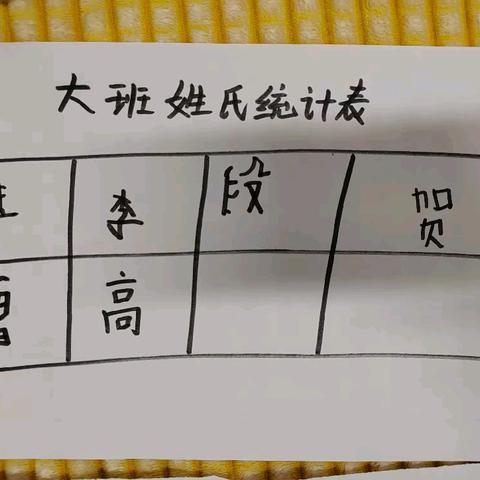 大班姓氏统计表
李 段 贺
高